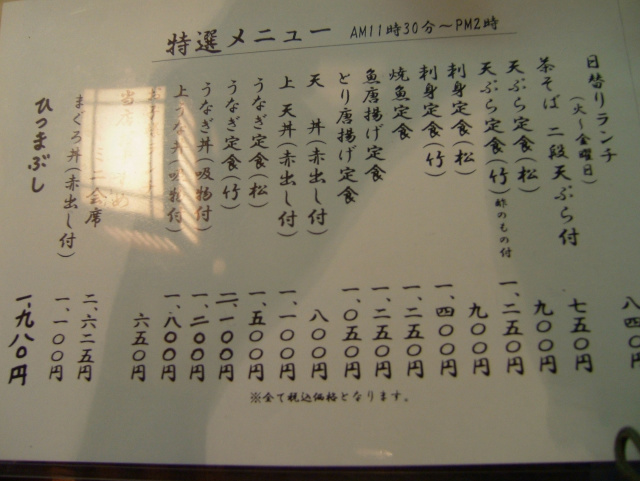 特選メニュー AM11時30分～PM2時
日替りランチ
(火～金曜日)
茶そば 二段天ぷら付
天ぷら定食(松)
天ぷら定食(竹) 酢のもの付
刺身定食(松)
刺身定食(竹)
焼魚定食
魚唐揚げ定食
とり唐揚げ定食
天 丼(赤出し付)
上 天丼(赤出し付)
うなぎ定食(松)
うなぎ定食(竹)
うなぎ丼(吸物付)
上うな丼(吸物付)
ミニ会席
まぐろ丼(赤出し付)
ひつまぶし
八四
七五〇円
九〇〇円
一、二五〇円
九〇〇円
一、四〇〇円
一、二五〇円
一、二五〇円
一、〇五〇円
八〇〇円
一、一〇〇円
一、五〇〇円
二、一〇〇円
一、二〇〇円
一、八〇〇円
六五〇円
二、六二五円
一、一〇〇円
一、九八〇円
※全て税込価格となります。